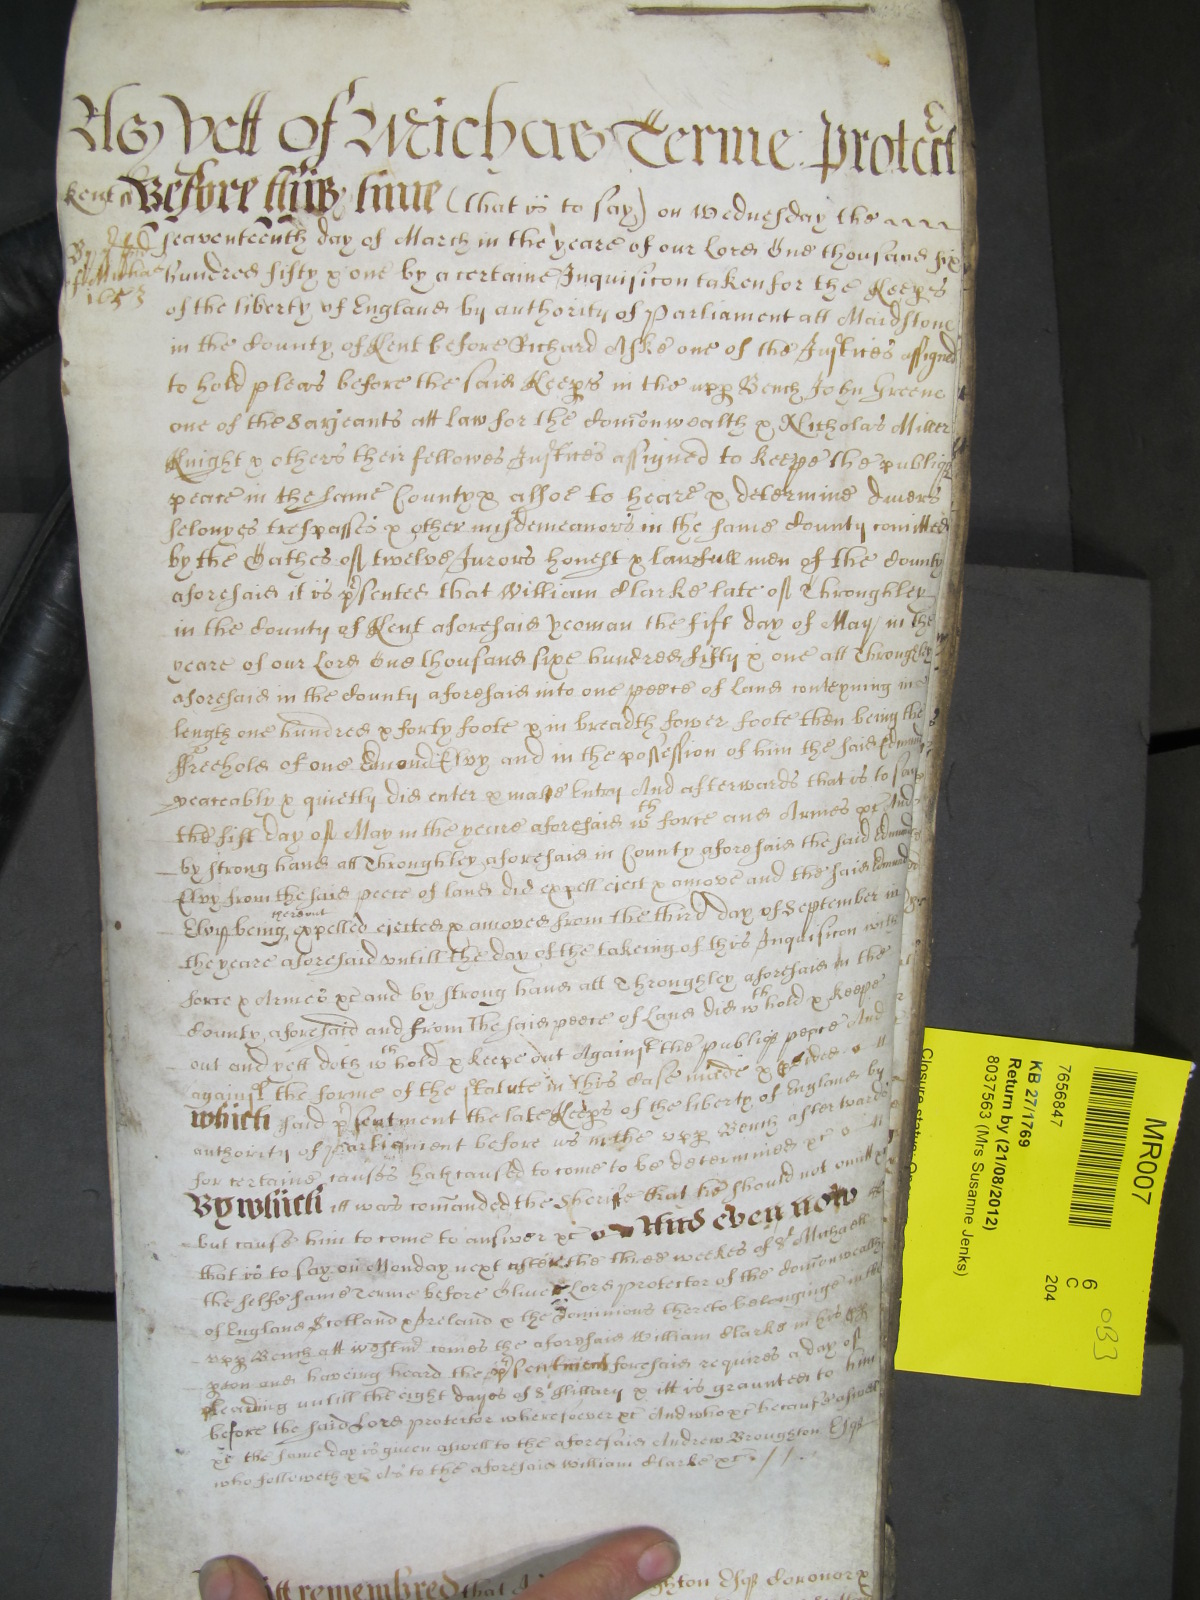 As yett of Michas Terme Protect
Kent ss Before this time (that is to say) on Wednesday the
seaventeenth day of March in the yeare of our Lord One thousand six
hundred fifty & one by a certaine Inquisicon taken for the Keeps
of the liberty of England by authority of Parliament att Maidstone
in the County of Kent before Richard Aske one of the Justices assigned
to hold pleas before the said Keeps in the upp Bench John Greene
one of the Sarjeants att law for the Comonwealth & Nicholas Miller
Knight & others their fellowes Justices assigned to keepe the publiq
peace in the same County & alsoe to heare & determine divers
felonyes trespasses & other misdemeanors in the same County comitted
by the Oathes of twelve Jurors honest & lawfull men of the County
aforesaid it is psented that William Clarke late of Throughley
in the County of Kent aforesaid yeoman the fift day of May in the
yeare of our Lord One thousand sixe hundred fifty & one att Throughley
aforesaid in the County aforesaid into one peece of land conteyning in
length one hundred & forty foote & in breadth fower foote then being the
ffreehold of one Edmond Elvy and in the possession of him the said Edmund
peaceably & quietly did enter & made Entry And afterwards that is to say
the fift day of May in the yeare aforesaid wth force and Armes &c And
by strong hand att Throughley aforesaid in County aforesaid the said Edmund
Elvy from the said peece of land did expell eject & amove and the said Edmund
Elvy being thereout expelled ejected & amoved from the third day of September in
the yeare aforesaid untill the day of the takeing of this Inquisicon with
force & Armes &c and by strong hand att Throughley aforesaid in the
County aforesaid and from the said peece of Land did wthhold & keepe
out and yett doth wthhold & keepe out Against the publiq peace And
against the forme of the statute in this case made & pvided
which said psentment the late Keeps of the liberty of England by
authority of Parliament before us in the upp Bench afterwards
for certaine causes hath caused to come to be determined &c
By which itt was comanded the Sherife that he should not omitt &c
but cause him to come to answer &c And even now
that is to say on Monday next after the three weekes of St Michaell
the selfe same Terme before Oliver Lord Protector of the Comonwealth
of England Scotland & Ireland & the Dominions thereto belonginge in the
upp Bench att Westm comes the aforesaid William Clarke in his
pson and haveing heard the psentment foresaid requires a day of
pleading untill the eight dayes of St Hillary & itt is graunted to him
before the said Lord protector wheresoever &c And who &c because aswell
&c the same day is given aswell to the aforesaid Andrew Broughton Esqr
who followeth &c As to the aforesaid William Clarke &c
itt remembred that
ghton Esqr Coronor &
1653
MR007
7656847
KB 27/1769
Return by (21/08/2012)
8037563 (Mrs Susanne Jenks)
Closure status:
6
C
204
083